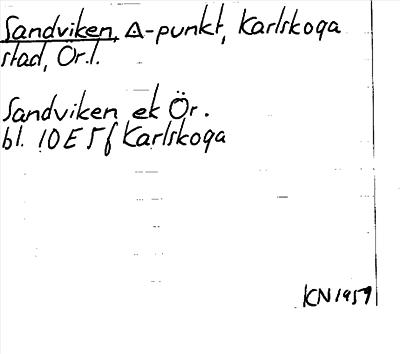 Sandviken, Δ-punkt, Karlskoga
stad, Ör.l.
Sandviken ek Ör.
bl. 10E 5f Karlskoga
KN 1959